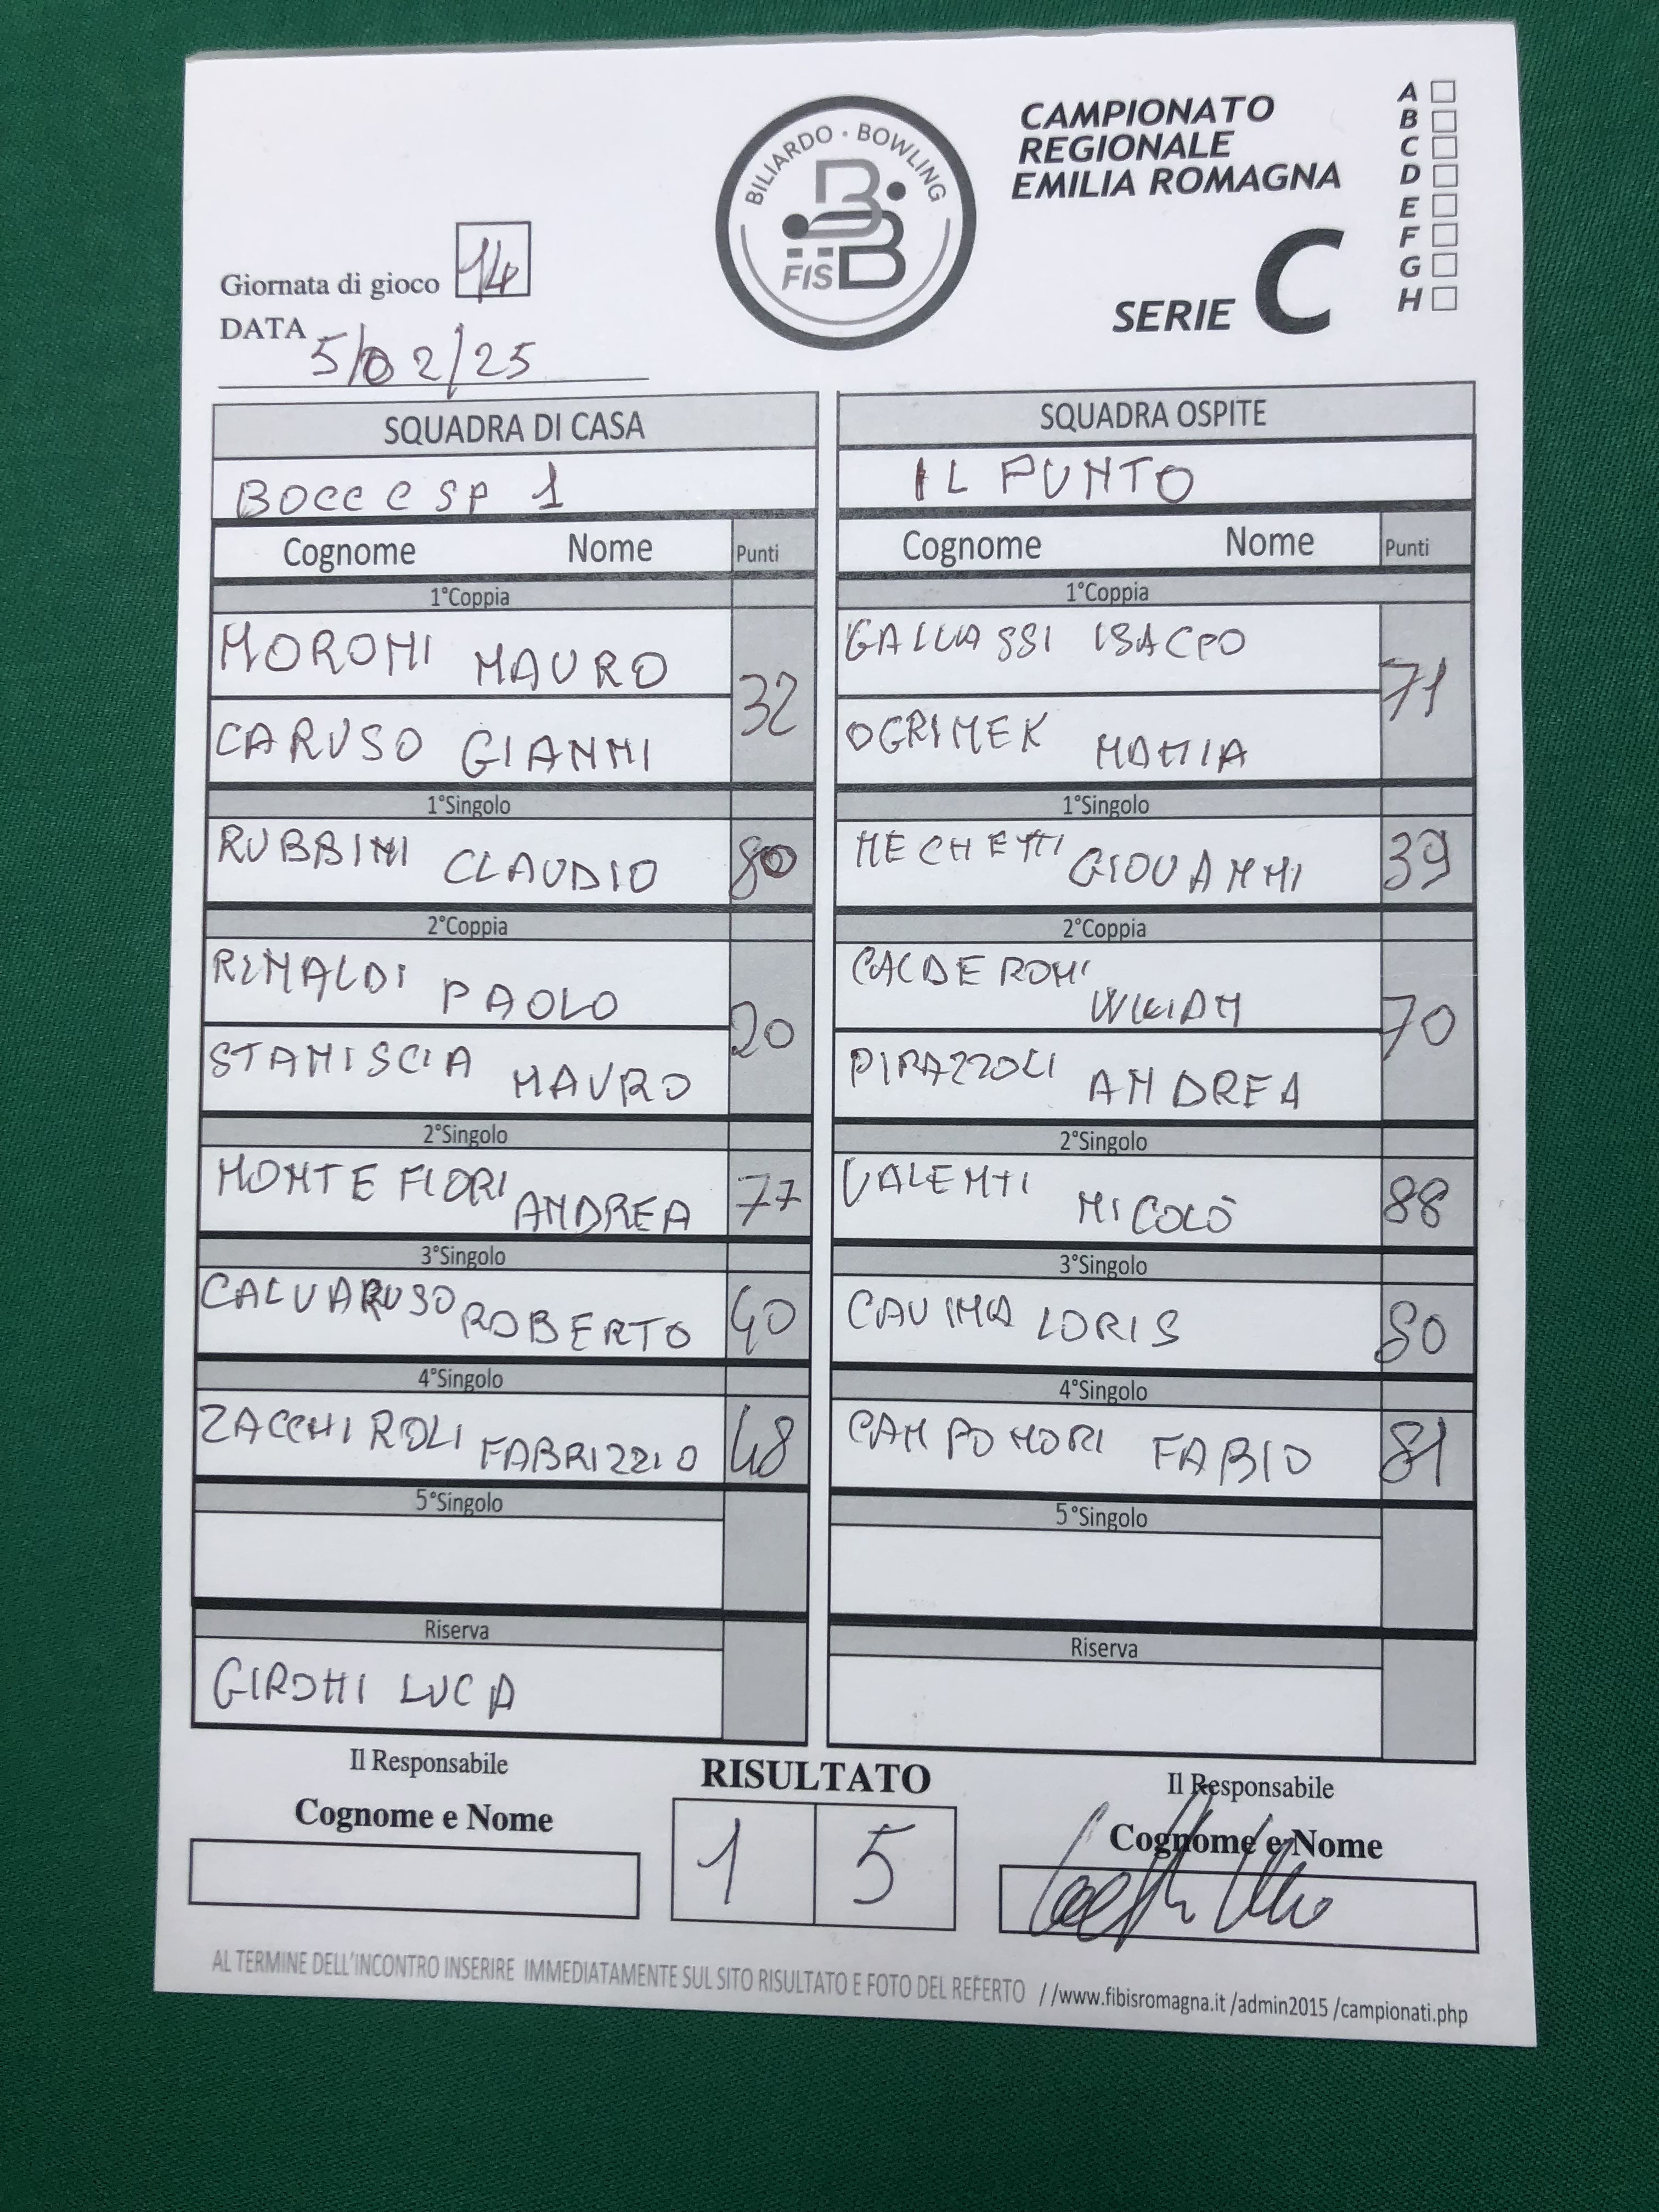 BILIARDO · BOWLING
FISBB
CAMPIONATO
REGIONALE
EMILIA ROMAGNA
SERIE C
A
B
C
D
E
F
G
H
Giornata di gioco 14
DATA 5/02/25
SQUADRA DI CASA
BOCC C SP 1
Cognome Nome Punti
1°Coppia
MORONI MAURO
32
CARUSO GIANNI
1°Singolo
RUBBINI CLAUDIO 80
2°Coppia
RINALDI PAOLO
20
STANISCIA MAURO
2°Singolo
MONTEFIORI ANDREA 77
3°Singolo
CALVARUSO ROBERTO 40
4°Singolo
ZACCHIROLI FABRIZZIO 48
5°Singolo
Riserva
GIRONI LUCA
SQUADRA OSPITE
IL PUNTO
Cognome Nome Punti
1°Coppia
71
OGRINEK
1°Singolo
MECHETTI GIOVANNI 39
2°Coppia
CALDERONI WILLIAM
70
PIRAZZOLI ANDREA
2°Singolo
VALENTI NICOLÒ 88
3°Singolo
CAVINA LORIS 80
4°Singolo
CAMPOMORI FABIO 81
5°Singolo
Riserva
Il Responsabile
Cognome e Nome
RISULTATO
1 5
Il Responsabile
Cognome e Nome
AL TERMINE DELL'INCONTRO INSERIRE IMMEDIATAMENTE SUL SITO RISULTATO E FOTO DEL REFERTO //www.fibisromagna.it/admin2015/campionati.php